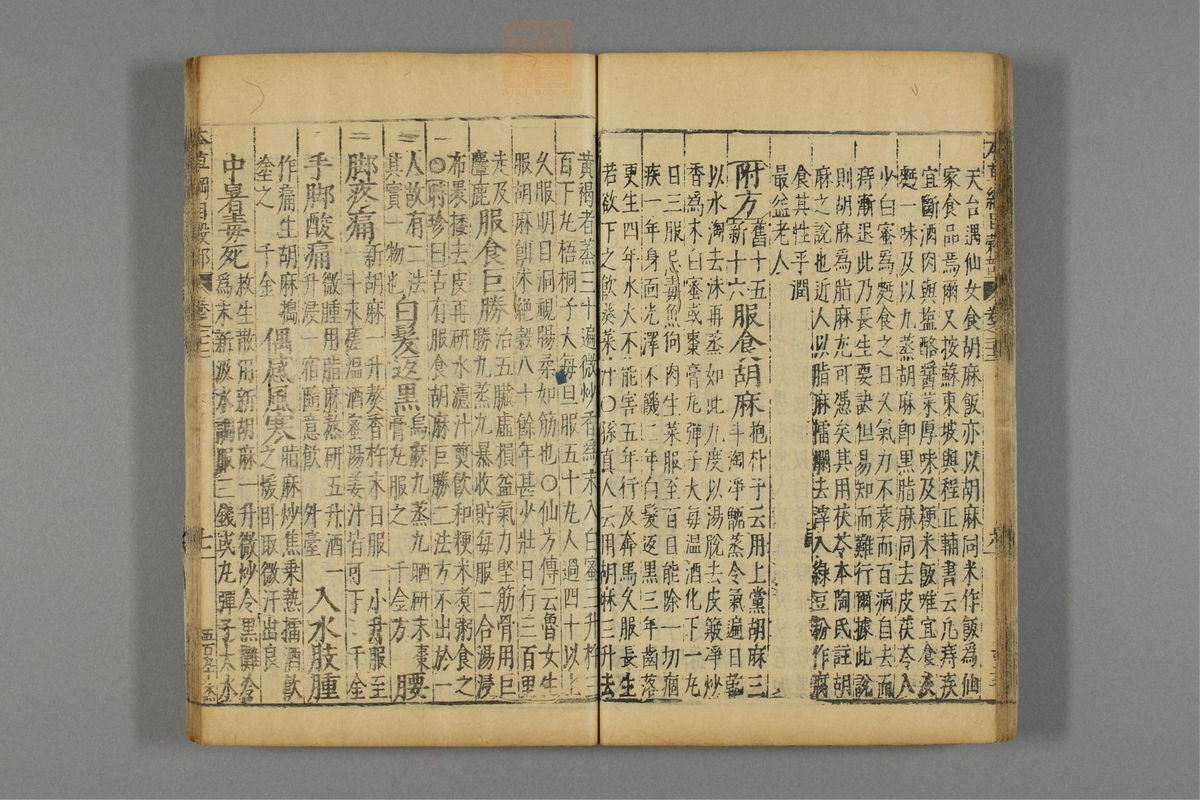 天台遇仙女食胡麻飯亦以胡麻同米作飯為仙
家食品焉爾又按蘇東坡與程正輔書云凡痔疾
宜斷酒肉與鹽酪醬菜厚味及粳米飯唯宜食淡
麪一味及以九蒸胡麻卽黑脂麻同去皮茯苓入
少白蜜為麪食之日久氣力不衰而百病自去而
痔漸退此乃長生要訣但易知而難行爾據此說
則胡麻為脂麻尤可憑矣其用茯苓本陶氏註胡
麻之說也近人以脂麻擂爛去滓入綠豆粉作腐
食其性平潤
最益老人
附方舊十五新十六服食胡麻抱朴子云用上黨胡麻三斗淘淨甑蒸令氣遍日乾
以水淘去沫再蒸如此九度以湯脫去皮簸淨炒
香爲末白蜜或棗膏丸彈子大每溫酒化下一丸
日三服忌毒魚狗肉生菜服至百日能除一切痼
疾一年身面光澤不饑二年白髮返黑三年齒落
更生四年水火不能害五年行及奔馬久服長生
若欲下之飲葵菜汁〇孫真人云用胡麻三升去
黃褐者蒸三十遍微炒香為末入白蜜三升杵三
百下丸梧桐子大每旦服五十丸人過四十以上
久服明目洞視腸柔如筋也〇仙方傳云魯女生
服胡麻餌朮絕穀八十餘年甚少壯日行三百里
走及麞鹿服食巨勝治五臟虛損益氣力堅筋骨用巨勝九蒸九暴收貯每服二合湯浸
布裹挼去皮再研水濾汁煎飲和粳米煑粥食之
〇時珍曰古有服食胡麻巨勝二法方不出於一
人故有二法其實一物也白髮返黑烏麻九蒸九晒研末棗膏丸服之 千金方 腰
脚疼痛新胡麻一升熬香杵末日服一小升服至一斗永瘥溫酒蜜湯姜汁皆可下 千金
手脚酸痛微腫用脂麻熬研五升酒一升浸一宿隨意飲 外臺 入水肢腫
作痛生胡麻搗塗之 千金 偶感風寒脂麻炒焦乘熱擂酒飲之煖臥取微汗出良
中暑毒死救生散用新胡麻一升微炒令黑攤冷為末新汲水調服三錢或丸彈子大水
本草綱目穀部 卷二十二